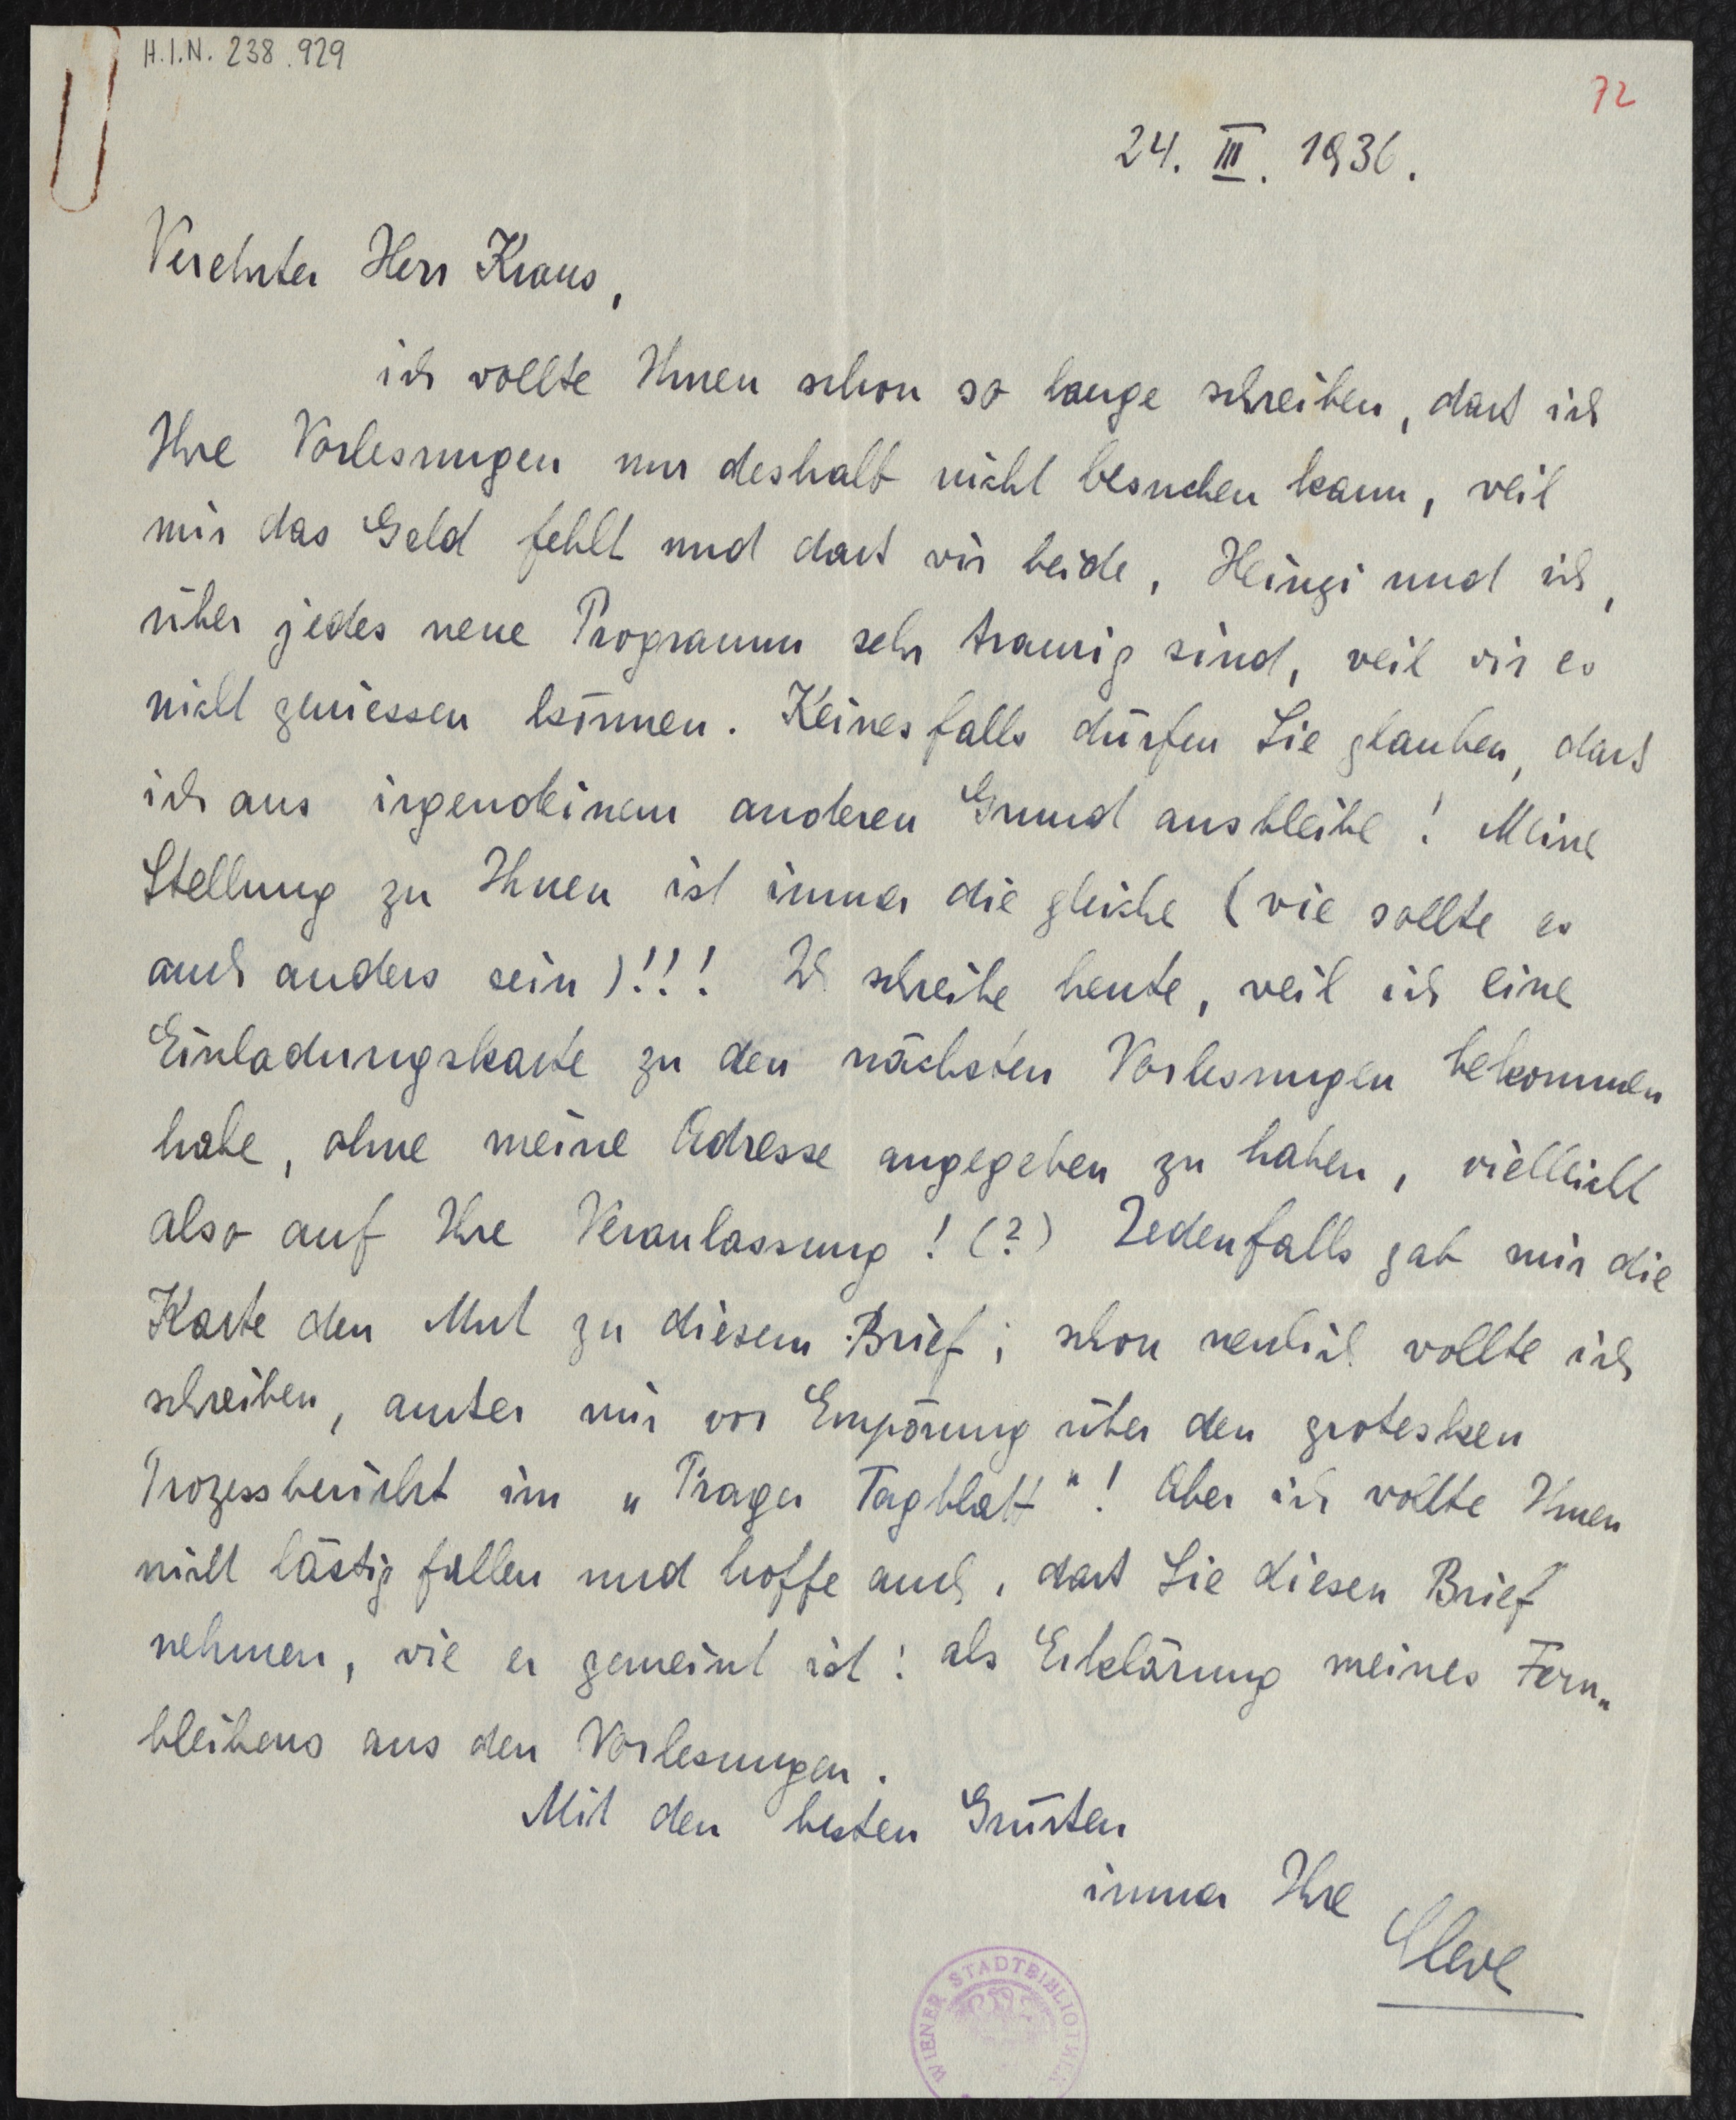 H.I.N. 238.929
72
24. III. 1936.
Verehrter Herr Kraus,
ich wollte Ihnen schon so lange schreiben, daß ich
Ihre Vorlesungen nur deshalb nicht besuchen kann, weil
mir das Geld fehlt und daß wir beide, Heinzi und ich,
über jedes neue Programm sehr traurig sind, weil wir es
nicht geniessen können. Keinesfalls dürfen Sie glauben, daß
ich aus irgendeinem anderen Grund ausbleibe! Meine
Stellung zu Ihnen ist immer die gleiche (wie sollte es
auch anders sein)!!! Ich schreibe heute, weil ich eine
Einladungskarte zu den nächsten Vorlesungen bekommen
habe, ohne meine Adresse angegeben zu haben, vielleicht
also auf Ihre Veranlassung! (?) Jedenfalls gab mir die
Karte den Mut zu diesem Brief; schon neulich wollte ich
schreiben, außer mir vor Empörung über den grotesken
Prozessbericht im „Prager Tagblatt"! Aber ich wollte Ihnen
nicht lästig fallen und hoffe auch, daß Sie diesen Brief
nehmen, wie er gemeint ist: als Erklärung meines Fern„
bleibens aus den Vorlesungen.
Mit den besten Grüßen
immer Ihre
WIENER STADTBIBLIOTHEK